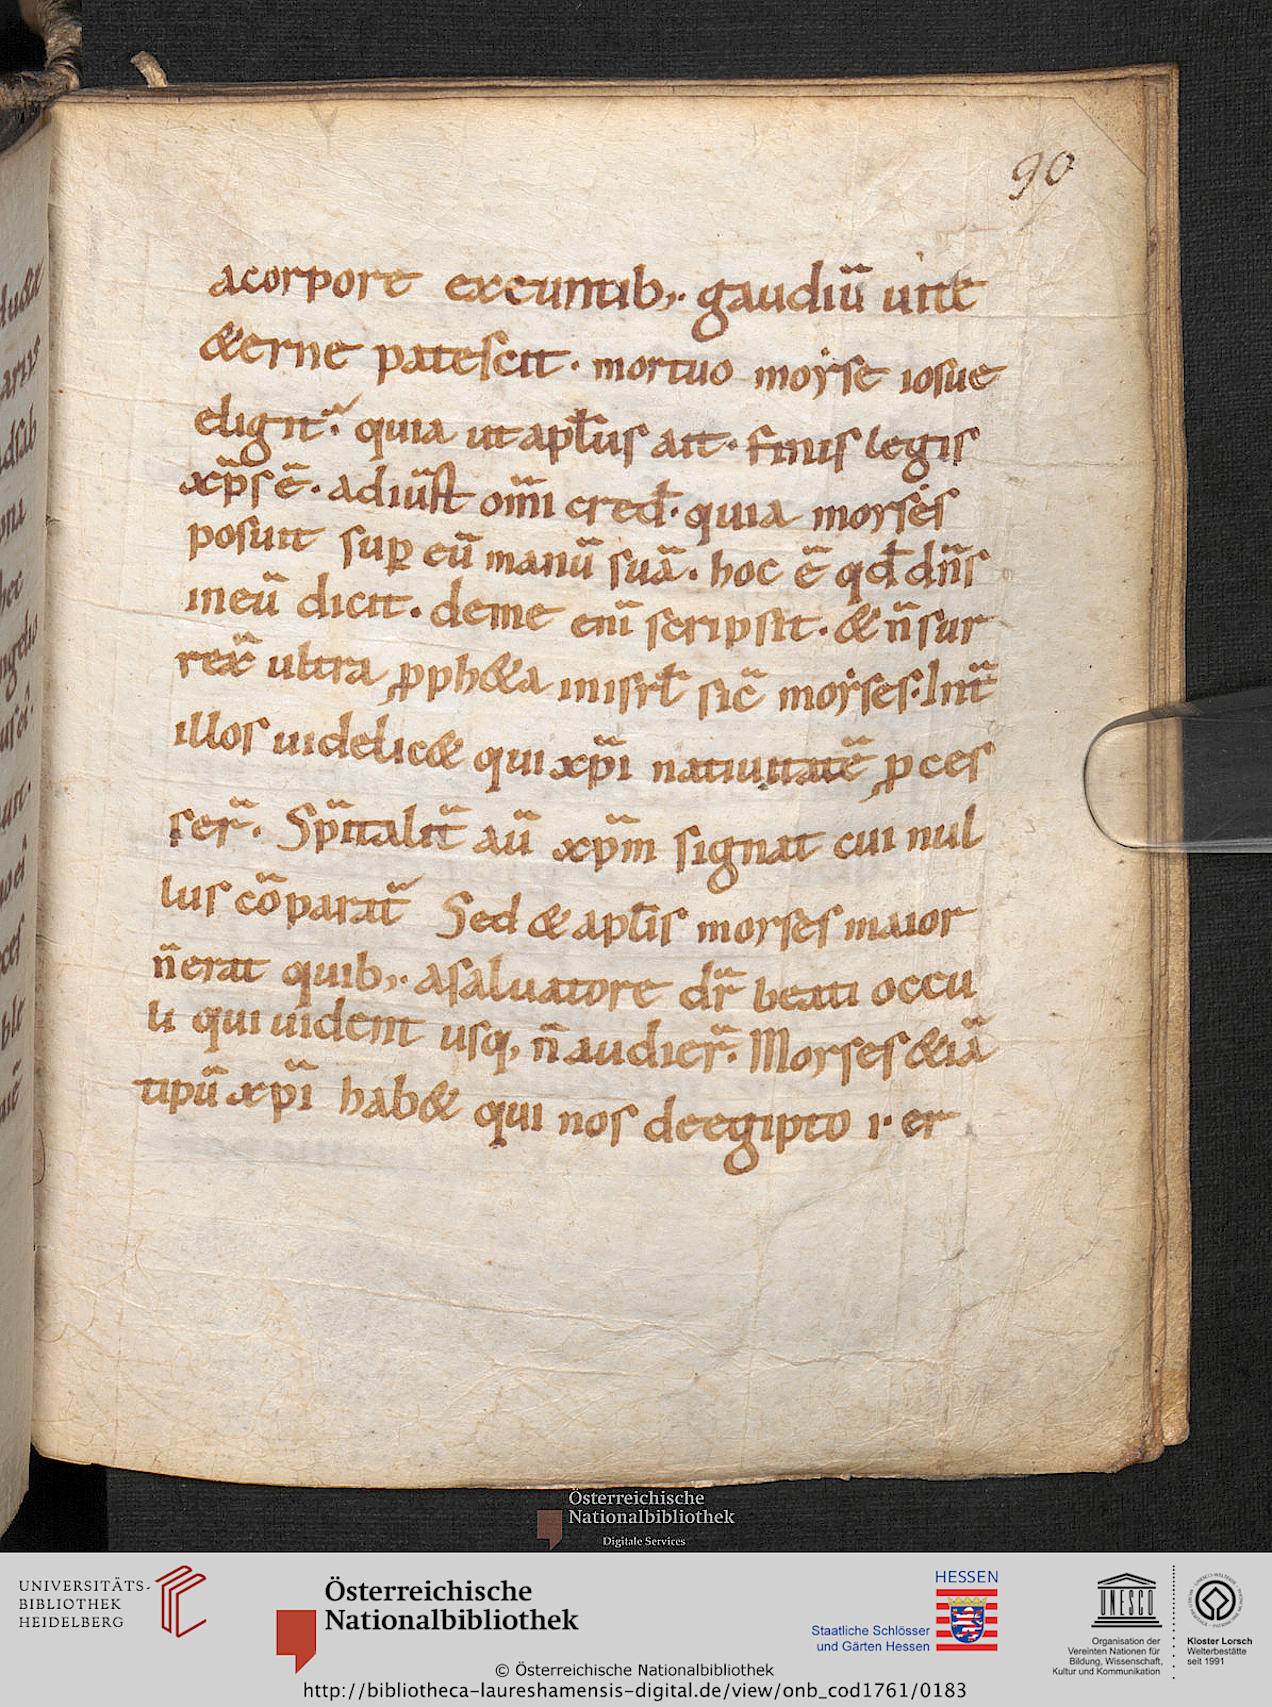 90
acorpore exeuntib;. gaudiū uite
&erne patescit. mortuo moyse iosue
eligit̄. quia ut apl̄us ait. finis legis
xp̄s ē. ad iūst om̄i cred̄. quia moyses
posuit sup eū manū suā. hoc ē qd̄ dn̄s
ineū dicit. deme eni̅ scripsit. & n̄ sur
rex̄ ultra pph&a inisrl̄ sic̄ moyses. Int̄
illos uidelic& qui xp̄i natiuitatē pces
ser̄. Sp̄italit̄ aū xp̄m signat cui nul
lus cōparat̄ Sed & apl̄is moyses maior
n̄ erat quib;. asaluatore dr̄ beati occu
li qui uident usq, n̄ audier̄. Moyses &iā
tipū xp̄i hab& qui nos deegipto i. er
Österreichische
Nationalbibliothek
Digitale Services
UNIVERSITÄTS-
BIBLIOTHEK
HEIDELBERG
Österreichische
Nationalbibliothek
HESSEN
Staatliche Schlösser
und Gärten Hessen
UNESCO
Organisation der
Vereinten Nationen für
Bildung, Wissenschaft,
Kultur und Kommunikation
Kloster Lorsch
Welterbestätte
seit 1991
© Österreichische Nationalbibliothek
http://bibliotheca-laureshamensis-digital.de/view/onb_cod1761/0183